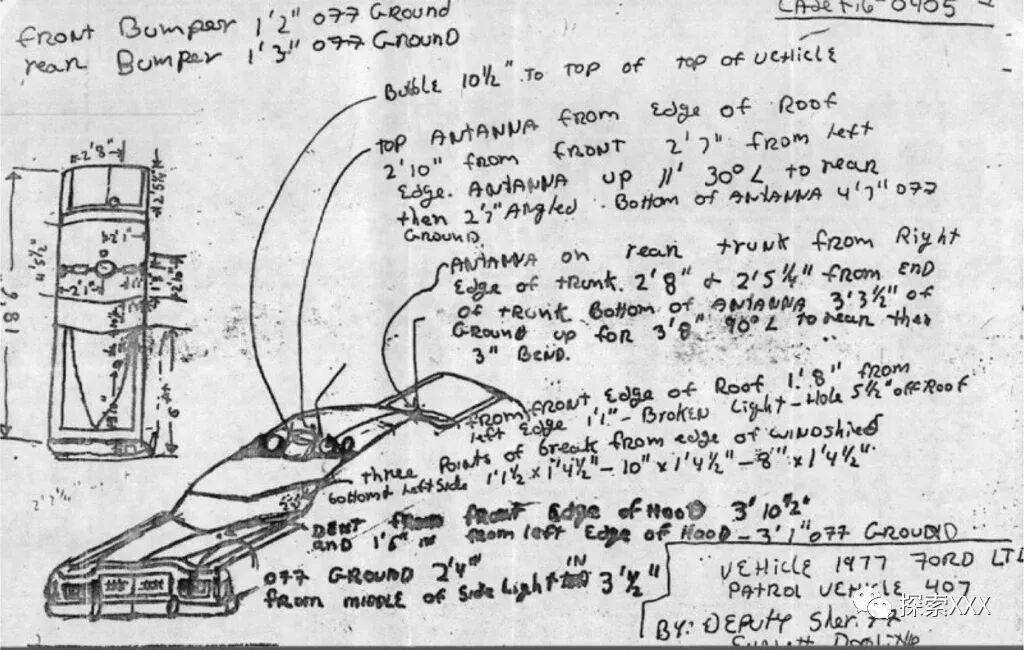 CASE F16-0405
front Bumper 1'2" 077 GROUND
rear Bumper 1'3" 077 GROUND
Bubble 10½" To Top of Top of VEHICLE
TOP ANTANNA from Edge of Roof
2'10" from FRONT 2'7" from left
Edge. ANTANNA up 11' 30° L to rear
then 2'7" Angled. Bottom of ANTANNA 4'7" 077
GROUND.
ANTANNA on rear trunk from Right
Edge of trunk. 2'8" & 2'5¼" from END
of trunk Bottom of ANTANNA 3'3½" of
Ground up for 3'8" 90° L to rear then
3" BEND.
from front Edge of Roof 1'8" from
left Edge 1'1" - Broken Light - Hole 5½" off Roof
three Points of Break from edge of windshield
bottom & Left Side 1'1½ x 1'4½" - 10" x 1'4½" - 8" x 1'4½"
DENT from front Edge of Hood 3'10½"
and 1'6" from left Edge of HOOD - 3'1" 077 GROUND
077 GROUND 2'4"
from middle of Side Light IN 3'½"
2'8"
2'5¼"
4'5½"
2'1"
2'1"
18'
VEHICLE 1977 FORD LTD
PATROL VEHICLE 407
BY: DEPUTY Sheriff
Everett Doolittle
探索XXX